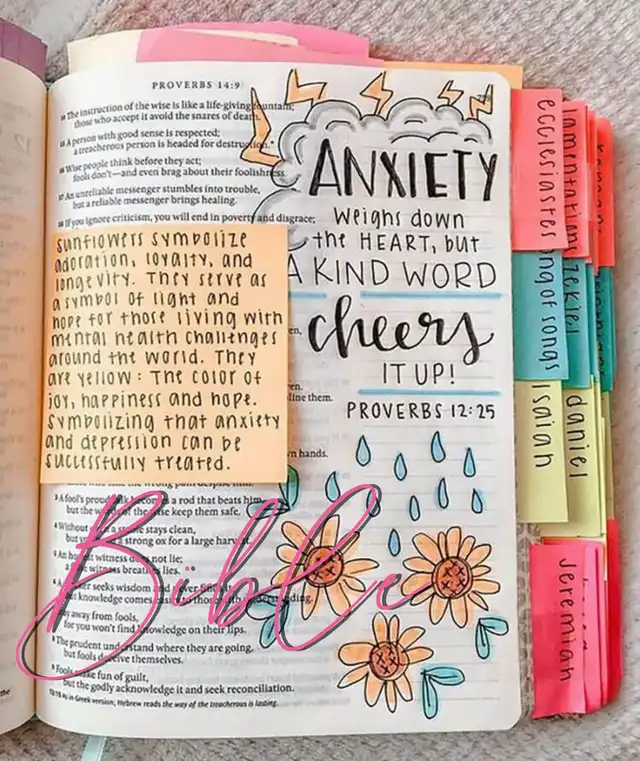 PROVERBS 14:9
The instruction of the wise is like a life-giving fountain;
those who accept it avoid the snares of death.
A person with good sense is respected;
a treacherous person is headed for destruction.
Wise people think before they act;
fools don't—and even brag about their foolishness.
An unreliable messenger stumbles into trouble,
but a reliable messenger brings healing.
If you ignore criticism, you will end in poverty and disgrace;
SUNFLOWERS SYMBOLIZE
adoration, loyalty, and
longevity. They serve as
a symbol of light and
hope for those living with
mental health challenges
around the world. They
are yellow: The color of
joy, happiness and hope.
Symbolizing that anxiety
and depression can be
successfully treated.
hands.
3 A fool's proud a rod that beats him,
but the of the wise keep them safe.
4 Without a stays clean,
but a strong ox for a large
5 An witness does not lie;
a lies.
seeks wisdom and
knowledge comes to those with
away from fools,
for you won't find knowledge on their lips.
The prudent understand where they are going,
but fools deceive themselves.
9 Fools make fun of guilt,
but the godly acknowledge it and seek reconciliation.
As in Greek version; Hebrew reads the way of the treacherous is lasting.
ANXIETY
weighs down
the HEART, but
A KIND WORD
cheers
IT UP!
PROVERBS 12:25
Bible
ecclesiastes
lamentations
song of songs
ezekiel
isaiah
daniel
Jeremiah